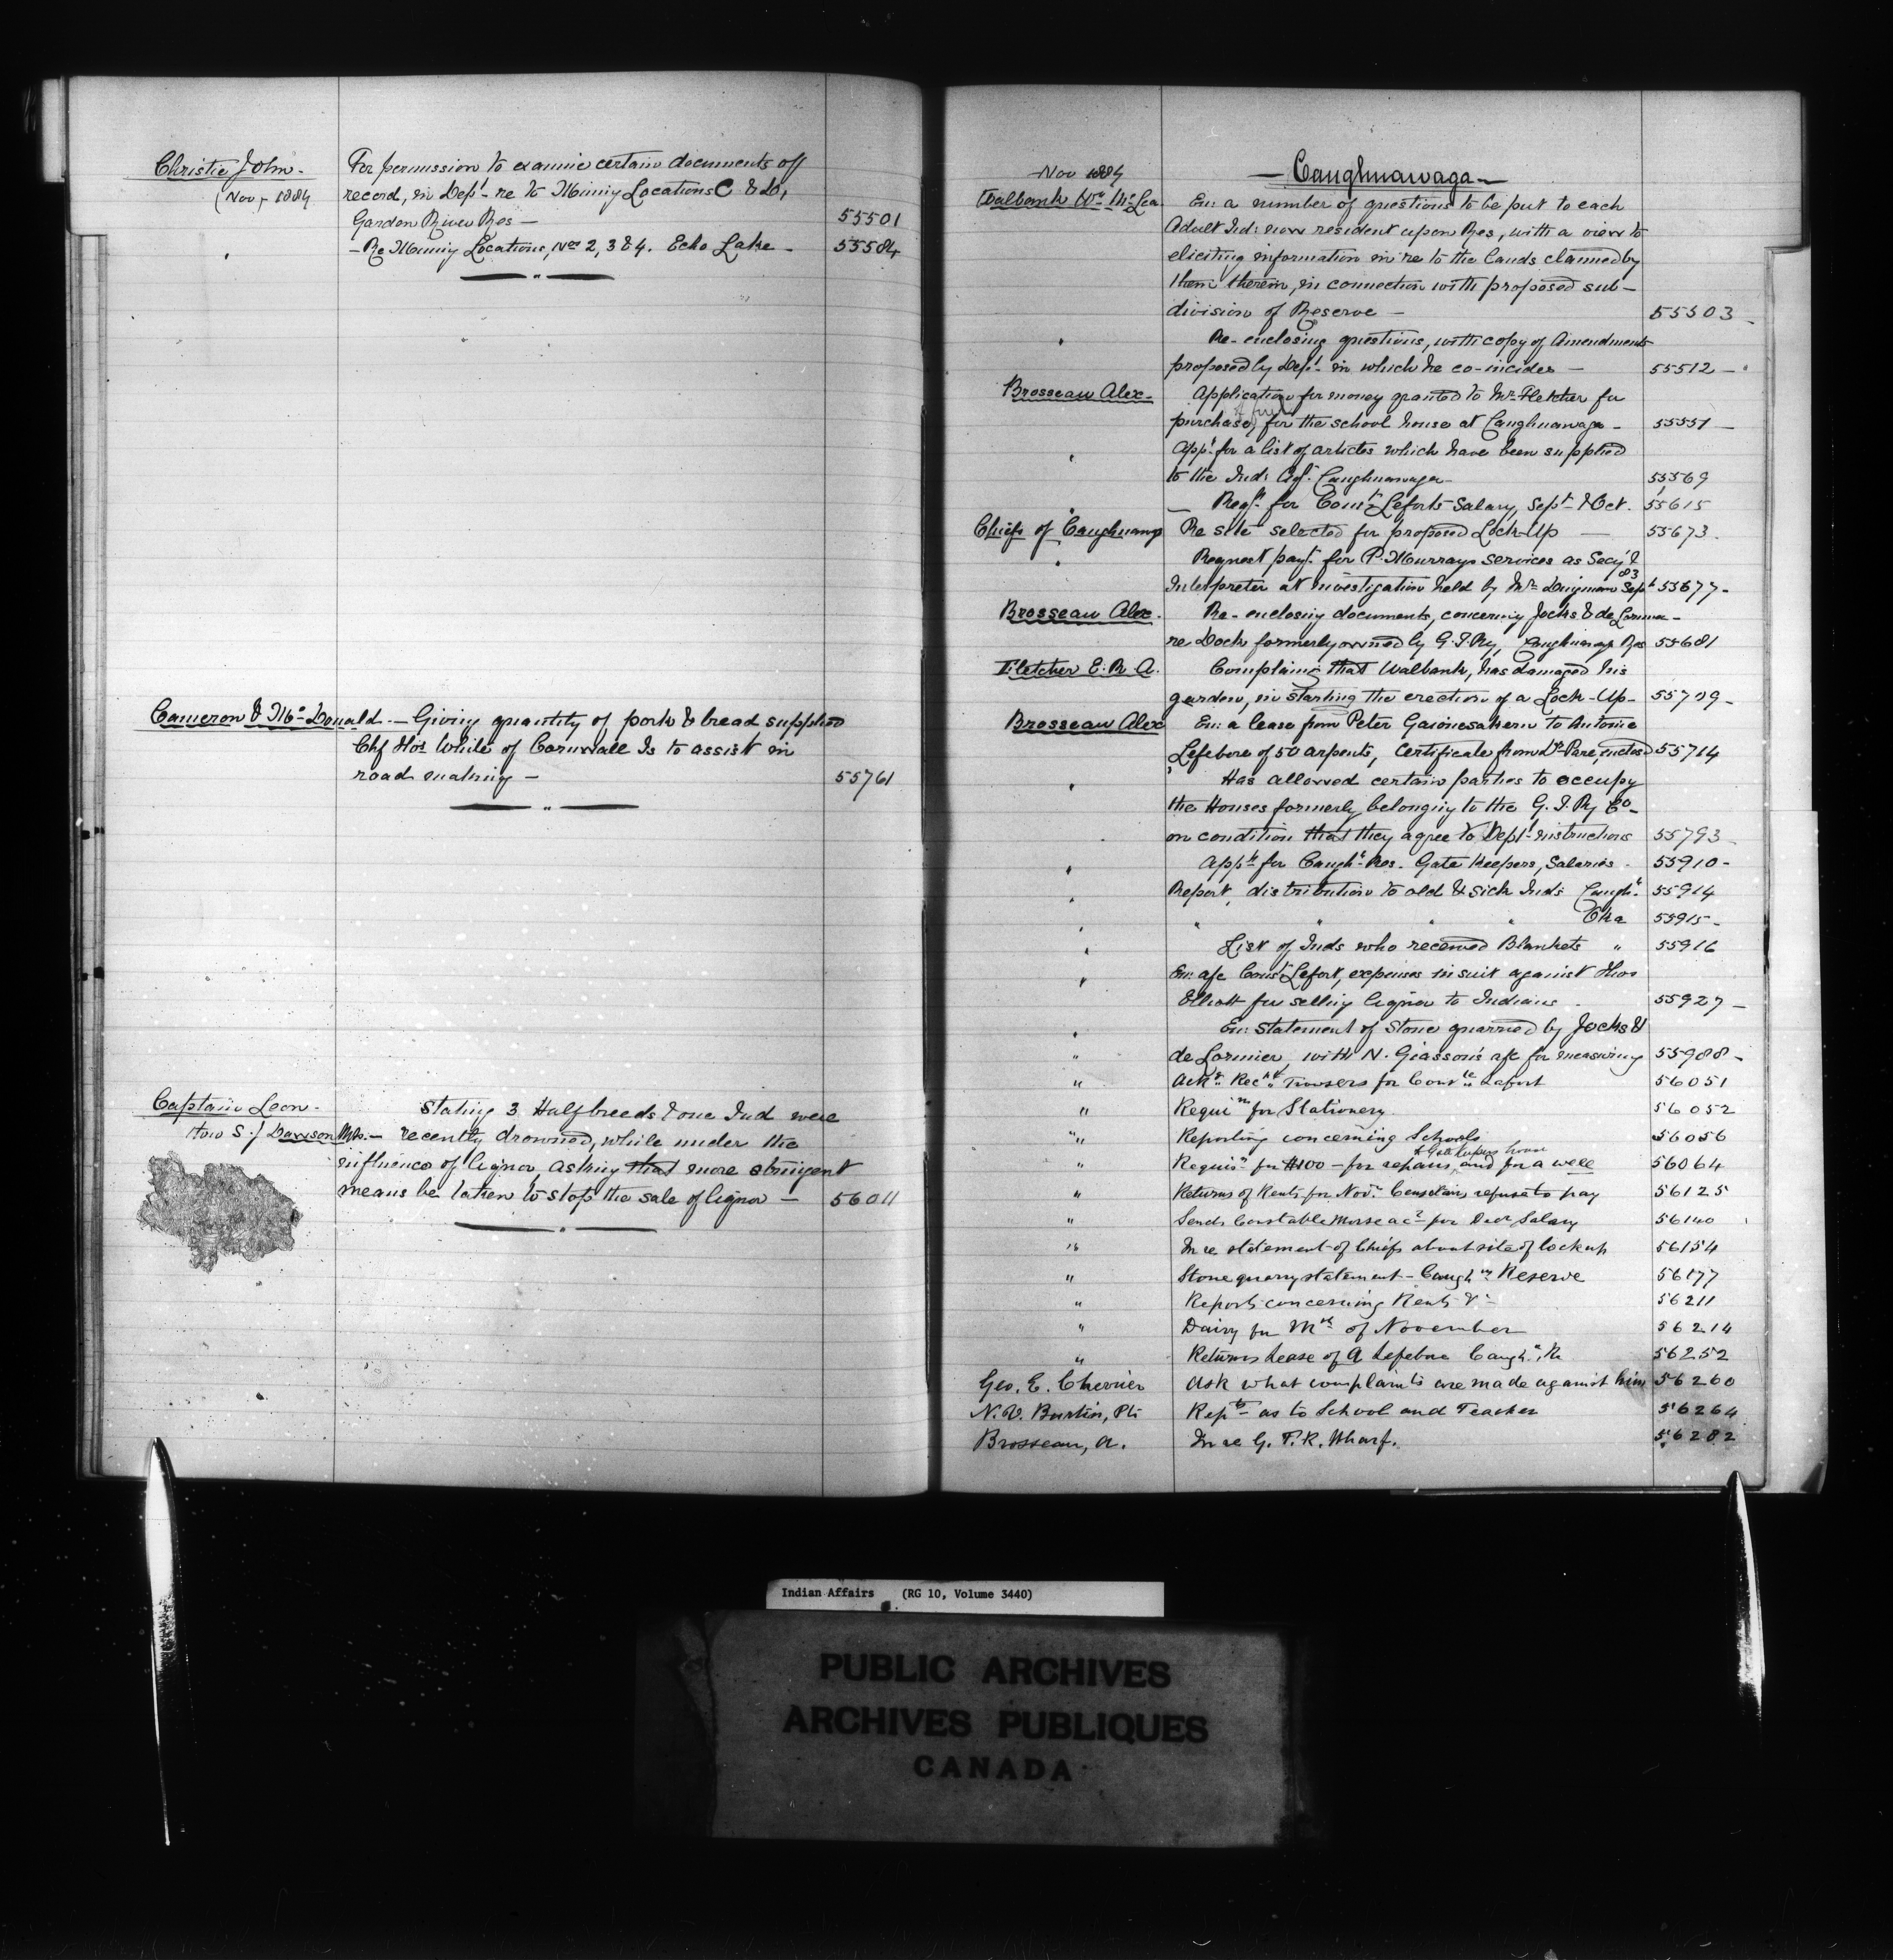 Christie John -
(Nov - 1884
For permission to examine certain documents off
record, in Dep't - re to Mining Locations C & D,
Garden River Res - 55501
- Re Mining Locations, Nos 2, 3 & 4. Echo Lake - 55584
Cameron & McDonald. - Giving quantity of pork & bread supplied
Chf Hos White of Is to assist in
road making - 55761
Captain Leon -
How S. / Dawson
Stating 3 Halfbreeds & one Ind were
recently drowned, while under the
influence of liquor, asking that more stringent
means be taken to stop the sale of liquor - 56011
Nov 1884
- Caughnawaga -
Walbank Wm McLea
En: a number of questions to be put to each
Adult Ind: now resident upon Res, with a view to
eliciting information in re to the lands claimed by
them therein, in connection with proposed sub-
division of Reserve - 55503 -
" Re-enclosing questions, with copy of Amendments
proposed by Dep't - in which he co-incides - 55512 -
Brosseau Alex - Application for money granted to Mr Fletcher for
of fuel
purchase, for the school house at Caughnawaga - 55551 -
" App't for a list of articles which have been supplied
to the Ind: Agt. Caughnawaga - 55569
" - Reqt. for Const. Leforts Salary, Sept - & Oct. 55615
Chiefs of Caughnawaga Re site selected for proposed Lock-Up - 55673.
" Request payt. for P. Murrays services as Secy &
83
Interpreter at investigation held by Mr Dingman Sept 55677 -
Brosseau Alex. Re-enclosing documents, concerning Jocks & de Lorimier -
re Dock formerly owned by G.T. Ry, Caughnawaga Res 55681
Fletcher E. R. A. Complains that Walbank, has damaged his
garden, in starting the erection of a Lock-Up - 55709 -
Brosseau Alex En: a lease from Peter to Antoine
Lefebvre of 50 arpents, Certificate from Dr Pare, inclosed 55714
" Has allowed certain parties to occupy
the Houses formerly belonging to the G. T. Ry Co -
on condition that they agree to Dept - instructions 55793 -
" App't for Caugh'a - Res. Gate Keepers, Salaries - 55910 -
" Report, distribution to old & sick Inds Caugh'a. 55914
" " " " " Oka 55915 -
" List of Inds who received Blankets " 55916
" En: a/c Const Lefort, expenses in suit against Thos
Elliott for selling liquor to Indians - 55927 -
" En: statement of Stone quarried by Jocks &
" de Lorimier, with N. Giasson's a/c for measuring 55988 -
" Ack'g Rec'pt Trousers for Const'le Lefort 56051
" Requi'n for Stationery 56052
" Reporting concerning Schools 56056
to Gate Keepers house
" Requis'n for $100 - for repairs, and for a well 56064
" Returns of Rents for Nov'r refuse to pay 56125
" Sends Constable Morse ac't for Decr Salary 56140
" In re statement of Chiefs about site of lock up 56154
" Stone quarry statement - Caugh'a Reserve 56177
" Reports concerning Rents &c - 56211
" Dairy for Mth of November 56214
" Returns Lease of A Lefebvre Caugh'a. R 56252
Geo. E. Cherrier Ask what complaints are made against him 56260
N. V. Burtin, Ptr Repts as to School and Teacher 56264
Brosseau, A. In re G. T. R. Wharf. 56282
Indian Affairs (RG 10, Volume 3440)
PUBLIC ARCHIVES
ARCHIVES PUBLIQUES
CANADA